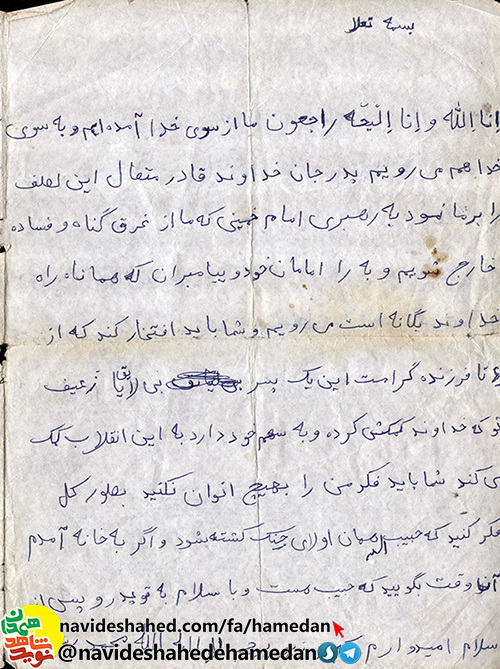 بسمه تعلا
انا الله و انا الیعه راجعون ما از سوی خدا آمده ایم و به سوی
خدا هم می رویم پدر جان خداوند قادر متعال این لطف
را بر ما نمود به رهبری امام خمینی که ما از غرق گناه و فساده
خارج شویم و به را امامان خود و پیامبران که هماناه راه
خداوند یگانه است می رویم و شما باید افتخار کند که از
۶ تا فرزنده گرامت این یک پسر بی لایاقت زعیف
تو که خداوند کمکش کرده و به سهم خود دارد به این انقلاب کمک
می کند شما باید فکر من را بهیچ انوان نکنید بطور کل
فکر کنید که حبیب الله همان اولای جنگ کشته شود و اگر به خانه آمدم
آن وقت بگویید که حبیب هست و با سلام به تو پدر و پس از
سلام امیدوارم
navideshahed.com/fa/hamedan
@navideshahedehamedan
نوید شاهد همدان